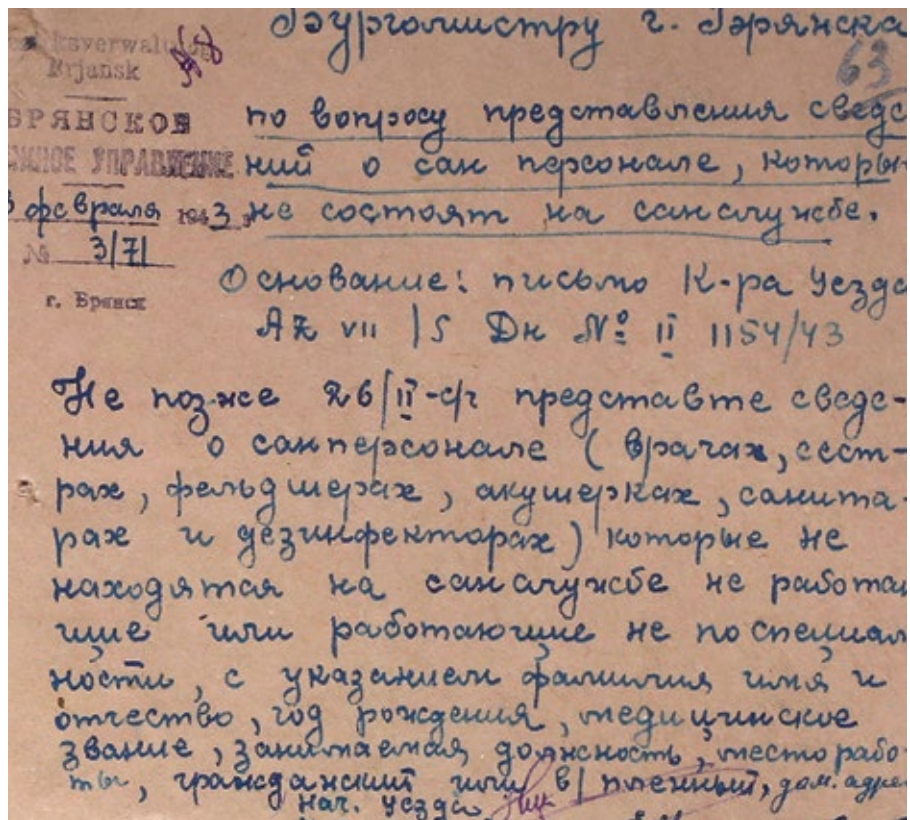 Бургомистру г. Брянска
63
Brjansk
БРЯНСКОЕ
УПРАВЛЕНИЕ
февраля 1943
№ 3/71
г. Брянск
по вопросу представления сведе-
ний о сан персонале, которы
не состоят на санслужбе.
Основание: письмо К-ра Уезда
AZ VII/5 Дн № II 1154/43
Не позже 26/II-с/г представте сведе-
ния о санперсонале (врачах, сест-
рах, фельдшерах, акушерках, санита-
рах и дезинфекторах) которые не
находятся на санслужбе не работаю
щие или работающие не по специал
ности, с указанием фамилия имя и
отчество, год рождения, медицинское
звание, занимаемая должность, место рабо-
ты, гражданский или в/пленный, дом. адрес
Нач. уезда